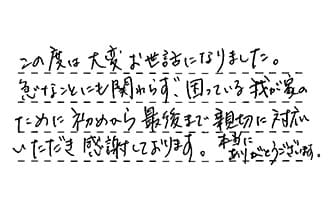 この度は大変お世話になりました。
急なことにも関わらず、困っている我が家の
ために初めから最後まで親切に対応
いただき感謝しております。本当に
ありがとうございます。